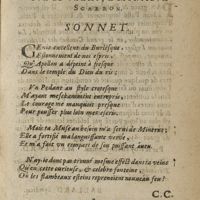 SCARRON.
SONNET.
GEnie excellent du Burlesque,
Estonnement de nos espris,
Qu'Apollon a despeint à fresque
Dans le temple du Dieu des ris;
Va Pedant au stile crotesque
M'ayant meschamment entrepris,
Le courage me manquoit presque
Pour pousser plus loin mes escris.
Mais ta Muse au besoin m'a servi de Minerve;
Elle a fortifié ma languissante verve,
Et m'a fait un rempart de son puissant
N'ay-je donc pas trouvé mesme effect dans ta veine
Qu'eut cette
Où les flambeaux esteins reprenoient nouveau feu?
C.C.